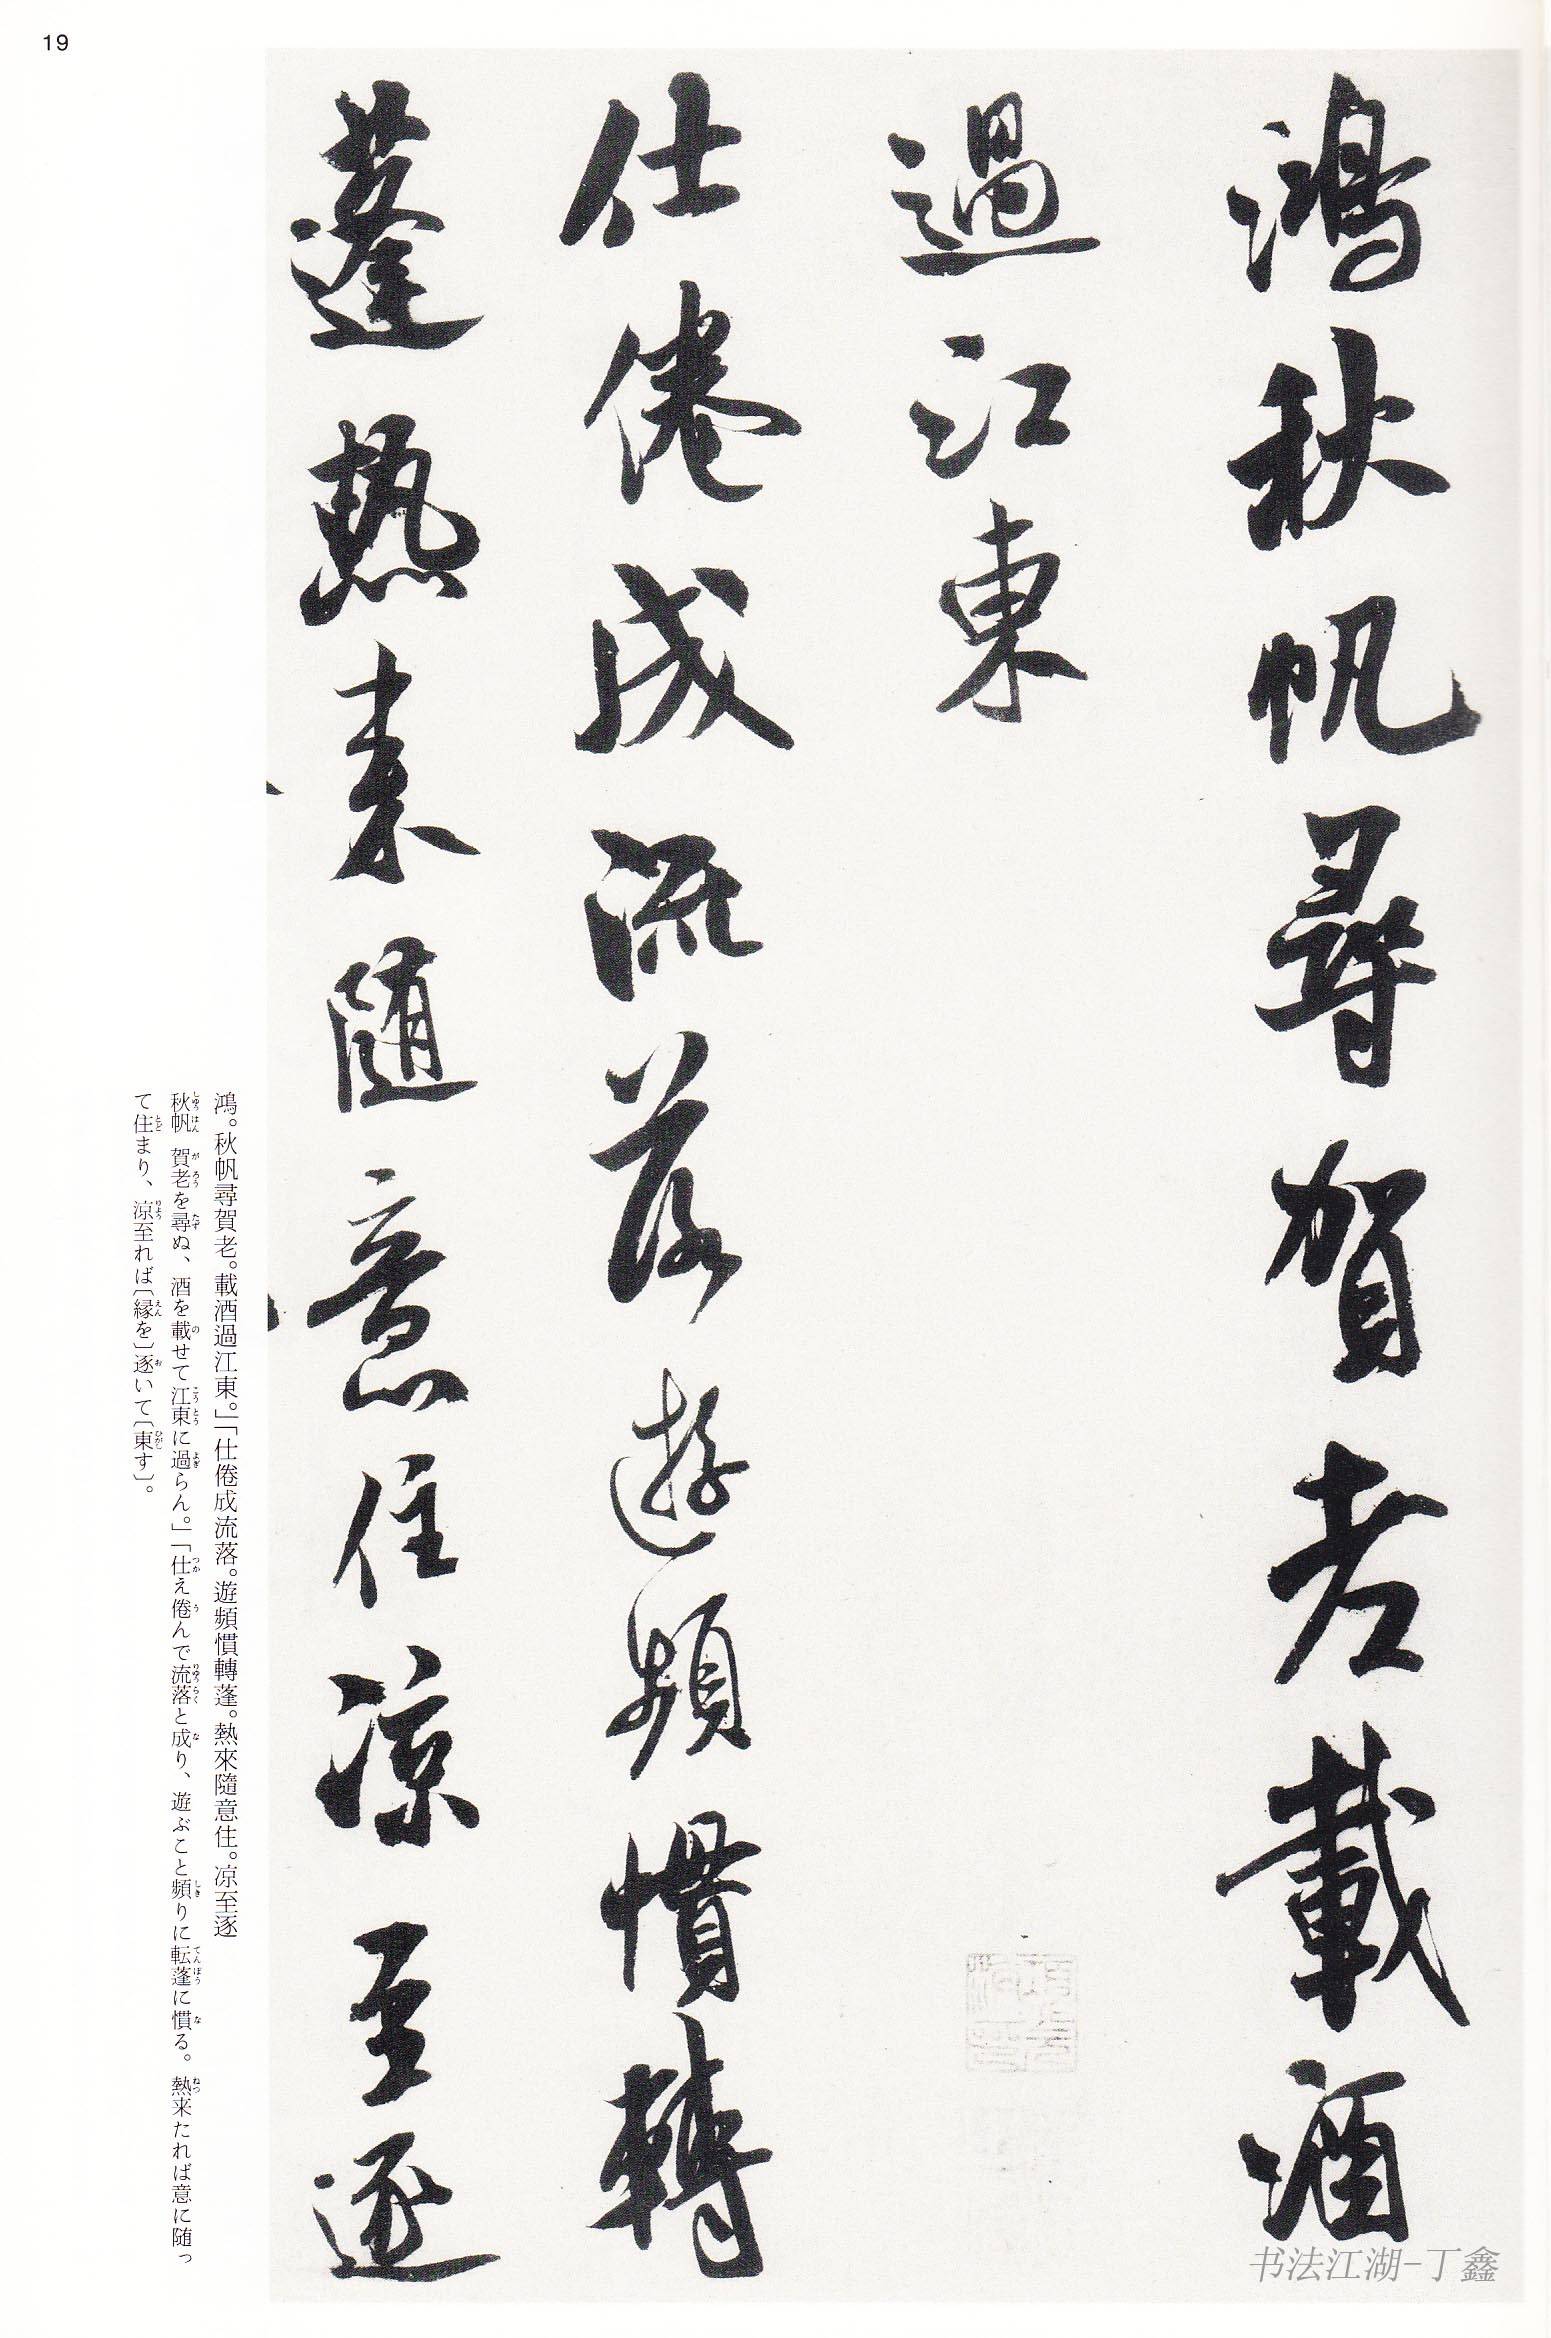 19
鴻秋帆尋賀老載酒
過江東
仕倦成流落遊頻慣轉
蓬熱来随意住凉至逐
鴻。秋帆尋賀老。載酒過江東。」「仕倦成流落。遊頻慣轉蓬。熱來隨意住。凉至逐
秋帆 賀老を尋ぬ、酒を載せて江東に過らん。」「仕え倦んで流落と成り、遊ぶこと頻りに転蓬に慣る。熱来たれば意に随っ
て住まり、涼至れば〔縁を〕逐いて〔東す〕。
书法江湖-丁鑫